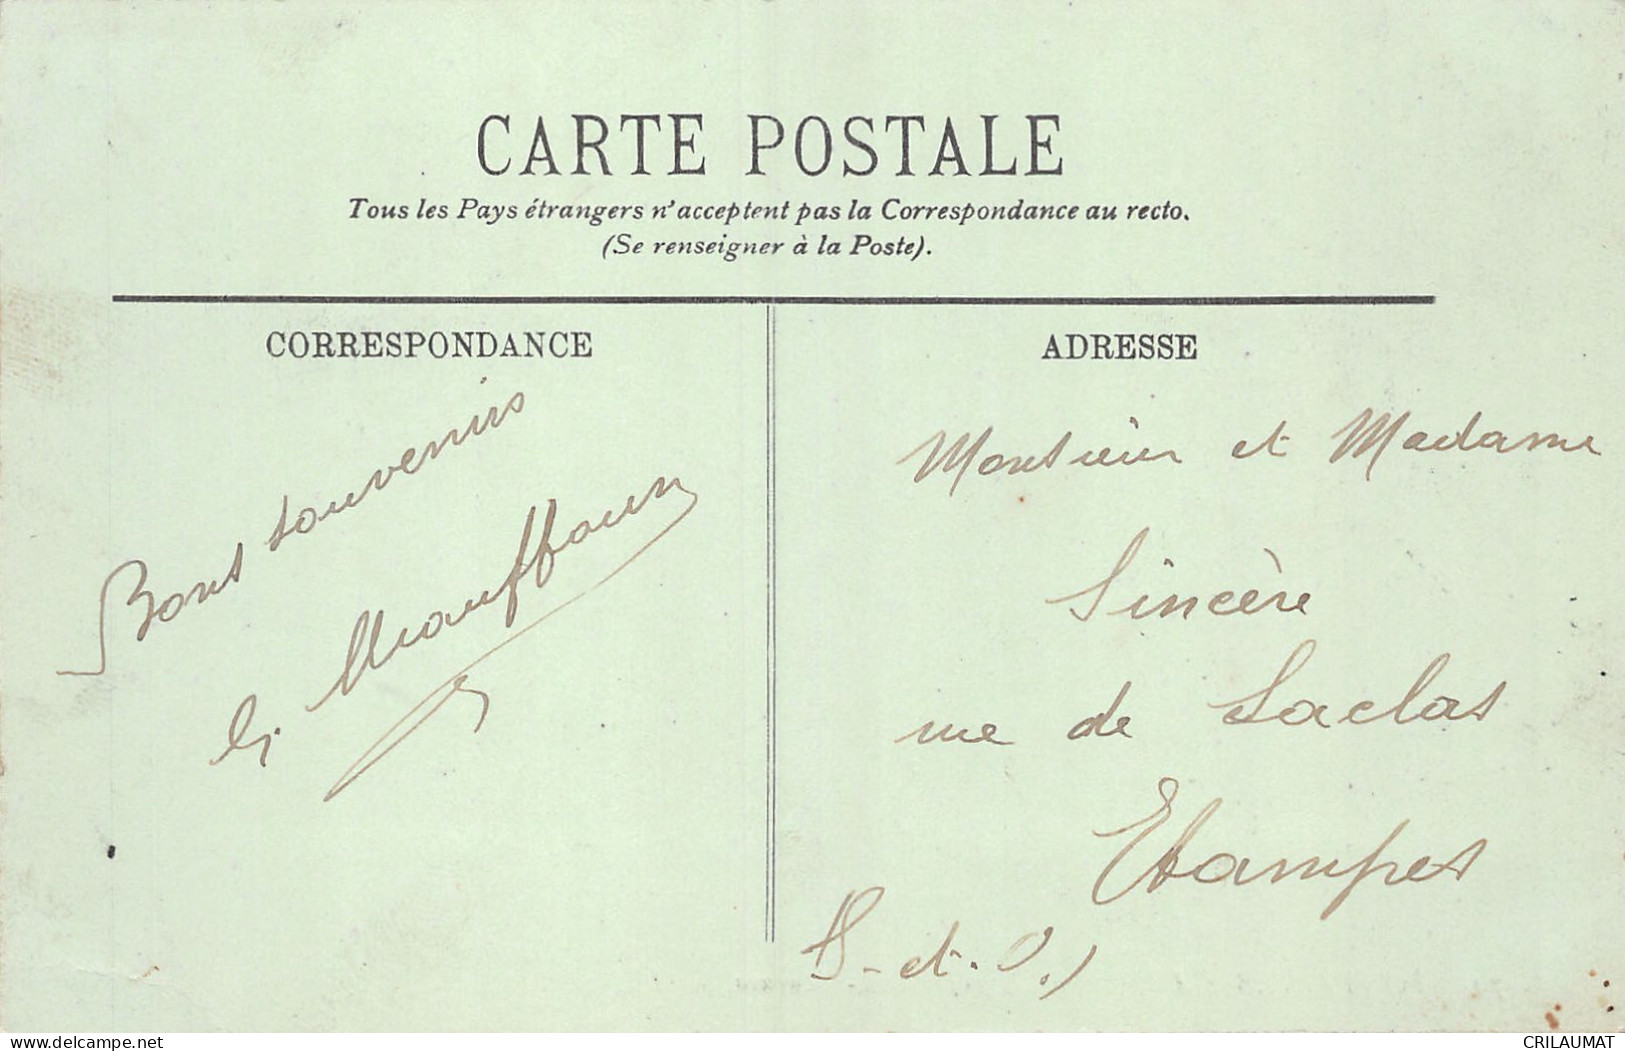 CARTE POSTALE
Tous les Pays étrangers n'acceptent pas la Correspondance au recto.
(Se renseigner à la Poste).
CORRESPONDANCE
ADRESSE
Bons souvenirs
Monsieur et Madame
Sincère
rue de Saclas
Etampes
S.-et-O.)
delcampe.net
CRILAUMAT